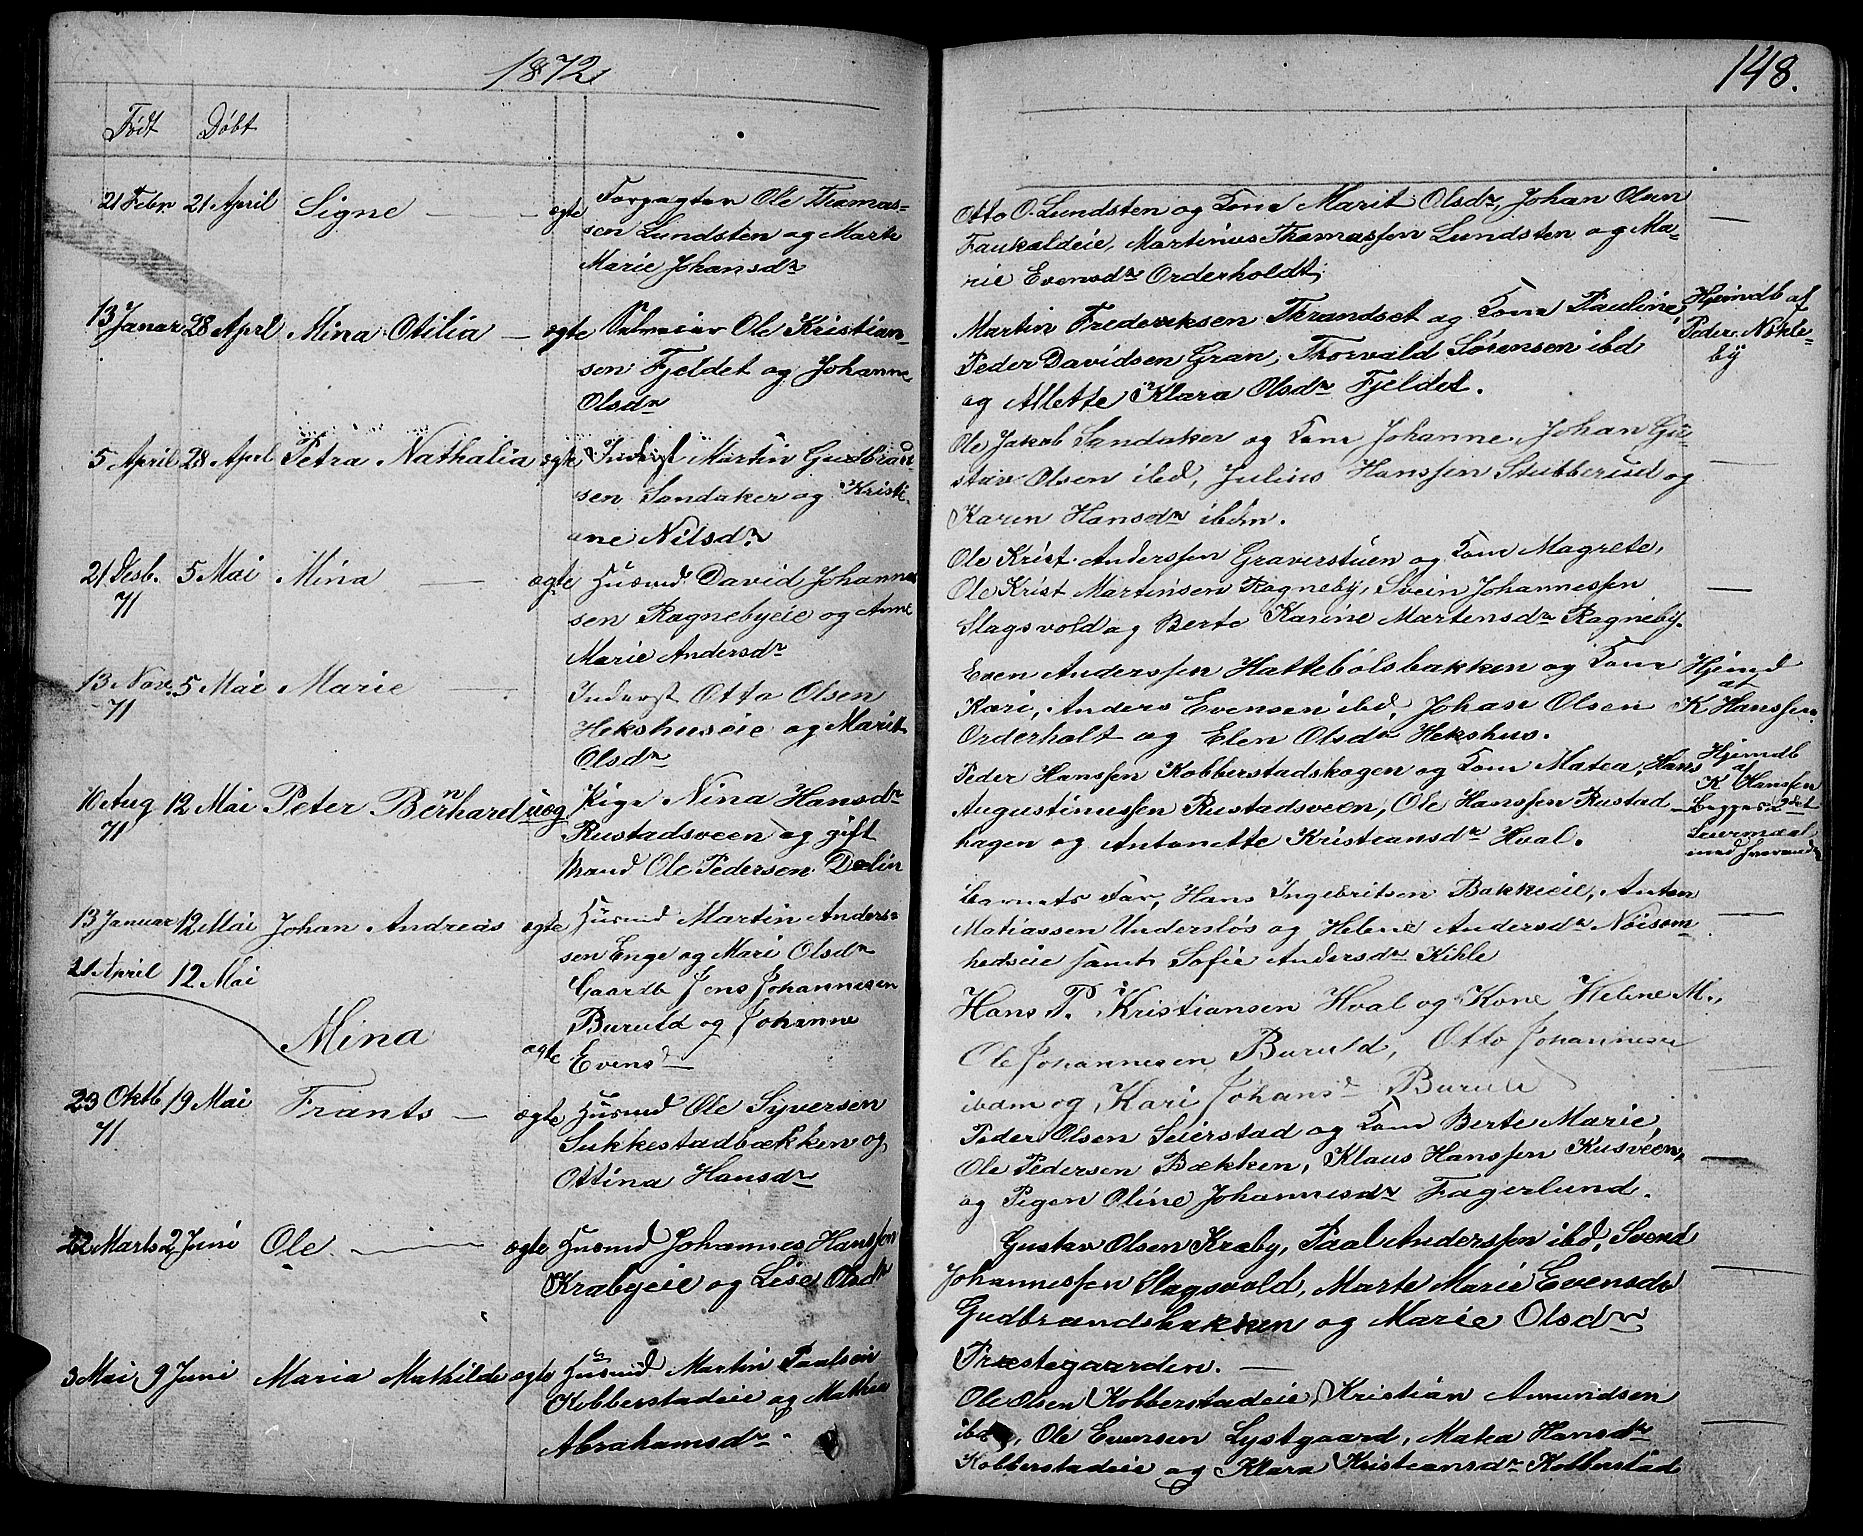 1872
148.
Født Døbt
21 Febr 21 April Signe — ægte Forpagter Ole Thomas-
sen Lundsten og Marte
Marie Johansdr
Otto O. Lundsten og Kone Marit Olsdr, Johan Olsen
Faukaldeie, Martinus Thomassen Lundsten og Ma-
rie Evensdr Orderholdt,
—
13 Januar 28 Aprl Mina Otilia — ægte Ole Kristian-
sen Fjeldet og Johanne
Olsdr
Martin Frederiksen Thrandset og Kone Pauline,
Peder Davidsen Gran, Thorvald Sørensen ibd
og Allette Klara Olsdr Fjeldet.
Hjemdb af
Peder Nøkle-
by
5 April 28 Aprl Petra Nathalia ægte Inderst Martin Gudbrand-
sen Sandaker og Kristi-
ane Nilsdr
Ole Jakob Sandaker og Kone Johanne, Johan Gu-
stav Olsen ibd, Julius Hanssen Stubberud og
Karen Hansdr ibdm.
—
21 Desb. 5 Mai Mina — ægte Husmd David Johannes
71
sen Ragnebyeie og Anne
Marie Andersdr
Ole Krist. Anderssen Graverstuen og Kone Magrete,
Ole Krist Martinsen Ragneby, Svein Johannessen
Slagsvold og Berte Karine Martensdr Ragneby.
—
13 Nov. 5 Mai Marie — Inderst Otto Olsen
71
Hekshuseie og Marit
Olsdr
Even Anderssen Hattebølsbakken og Kone
Kari, Anders Evensen ibd, Johan Olsen
Orderholt og Elen Olsdr Hekshus.
Hjemd
af
K Hanssen
10 Aug 12 Mai Peter Bernhard uæg Pige Nina Hansdr
71
Rustadsveen og gift
Mand Ole Pedersen Dælin
Peder Hanssen Kobberstadskogen og Kone Matea, Hans
Augustinussen Rustadsveen, Ole Hanssen Rustad-
hagen og Antonette Kristiansdr Hval.
Hjemdb
af
K Hanssen
Begges 2det
Leiermaal
med hverandr
13 Januar 12 Mai Johan Andreas ægte Husmd Martin Anders-
sen Enge og Mari Olsdr
Barnets Far, Hans Ingebritsen Bakkieie, Anton
Matiassen Undersløs og Helene Andersdr Nøisom-
hedseie samt Sofie Andersdr Kihle
—
21 April 12 Mai
Mina ægte
Gaardb Jens Johannesen
Buruld og Johanne
Evensd
Hans P. Kristiansen Hval og Kone Helene M.,
Ole Johannesen Buruld, Otto Johannesen
ibdm og Kari Johansd Buruld
23 Oktb 19 Mai Frants — ægte Husmd Ole Syversen
71
Sukkestadbækken og
Ottina Hansdr
Peder Olsen Seierstad og Kone Berte Marie,
Ole Pedersen Bækken, Klaus Hanssen Kusveen,
og Pigen Oline Johannesdr Fagerlund.
—
22 Marts 2 Juni Ole — ægte Husmd Johannes Hanssen
Krabyeie og Lise Olsdr
Gustav Olsen Kraby, Paal Anderssen ibd, Svend
Johannessen Slagsvold, Marte Marie Evensdr
Gudbrandsbakken og Marie Olsdr
Præstegaarden. —
—
3 Mai 9 Juni Maria Mathilde ægte Husmd Martin Paulsen
Kobberstadeie og Mathea
Abrahamsdr
Ole Olsen Kobberstadeie, Kristian Amundsen
ibd, Ole Evensen Lystgaard, Matea Hansdr
Kobberstadeie og Klara Kristiansdr Kobberstad
—